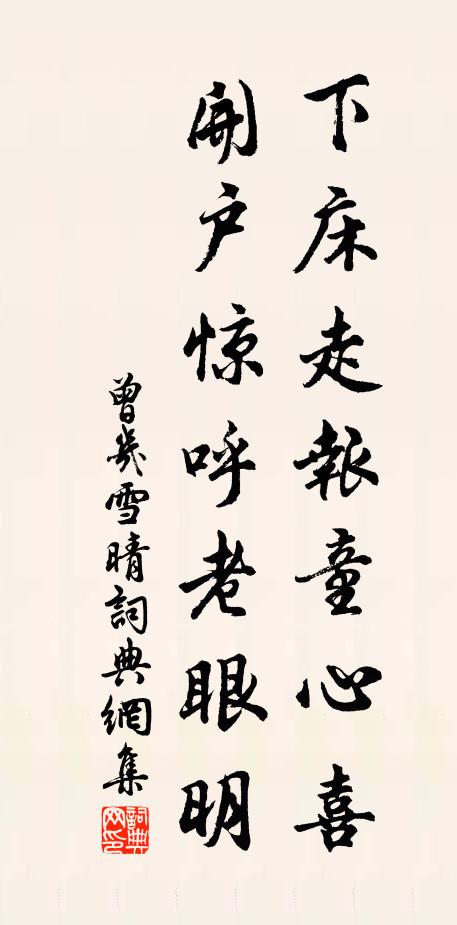 下床走報童心喜
開户惊呼老眼明
曾幾雪晴詞典網集
詞典網印